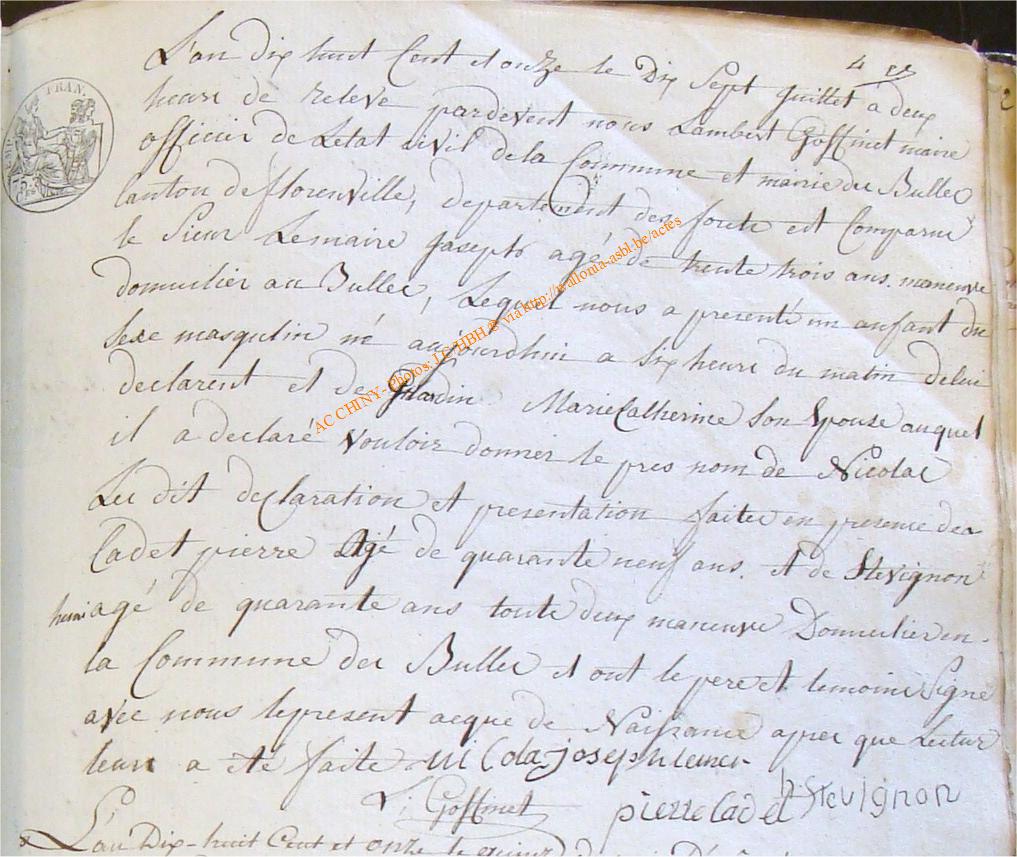 4 
L'an Dix huit Cent et onze le Dix Sept Juillet a deux
heure de relevé pardevent nous Lambert Goffinet maire
officier de Letat Civil de la Commune et mairie du Bulles
Canton de florenville, departement des forets est Comparu
le Sieur Lemaire Joseph agé de trente trois ans maneuvre
domicilier au Bulles, Lequel nous a presenté un anfant du
Sexe masqulin né aujourdhui a Six heure du matin de lui
declarent et de Gilardin Marie Catherine Son Epouse auquel
il a declaré vouloir donner le pres nom de Nicolas
Les dit declaration et presentation faite en presence des
Cadet pierre Agé de quarante neuf ans. et de Stevignon
henri agé de quarante ans toute deux maneuvre Domicilier en
la Commune des Bulles et ont le pere et temoins Signé
avec nous le present acque de Naissance apres que Lectur
leurs a été faite nicola joseph lemer
L: Goffinet pierre Cadet h Stevignon
L'an Dix-huit Cent et onze le quinz
FRAN.
EMP.
AC CHINY - Photos: LG HBH @ via http://wallonia-asbl.be/actes